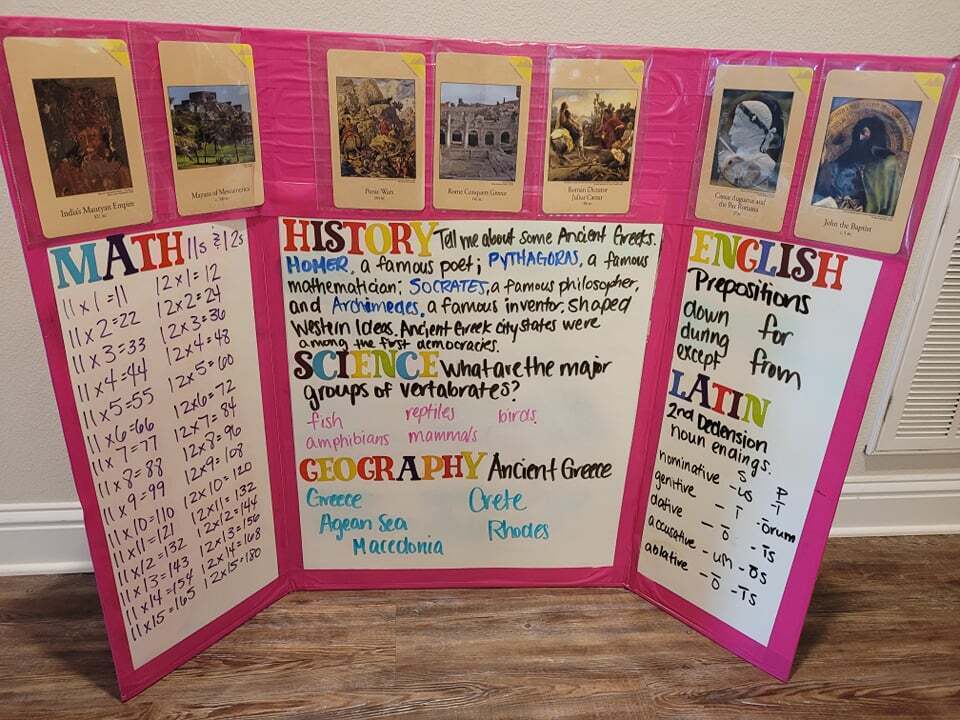 India's Mauryan Empire
Mayans of Mesoamerica
Punic Wars
Rome Conquers Greece
Roman Dictator
Julius Caesar
Caesar Augustus and
the Pax Romana
John the Baptist
MATH 11s & 12s
11 x 1 = 11 12 x 1 = 12
11 x 2 = 22 12 x 2 = 24
11 x 3 = 33 12 x 3 = 36
11 x 4 = 44 12 x 4 = 48
11 x 5 = 55 12 x 5 = 60
11 x 6 = 66 12 x 6 = 72
11 x 7 = 77 12 x 7 = 84
11 x 8 = 88 12 x 8 = 96
11 x 9 = 99 12 x 9 = 108
11 x 10 = 110 12 x 10 = 120
11 x 11 = 121 12 x 11 = 132
11 x 12 = 132 12 x 12 = 144
11 x 13 = 143 12 x 13 = 156
11 x 14 = 154 12 x 14 = 168
11 x 15 = 165 12 x 15 = 180
HISTORY Tell me about some Ancient Greeks.
HOMER, a famous poet; PYTHAGORAS, a famous
mathematician; SOCRATES, a famous philosopher,
and Archimedes, a famous inventor, shaped
Western Ideas. Ancient Greek city states were
among the first democracies.
SCIENCE What are the major
groups of vertabrates?
fish reptiles birds
amphibians mammals
GEOGRAPHY Ancient Greece
Greece Crete
Agean Sea Rhodes
Macedonia
ENGLISH
Prepositions
down for
during from
except
LATIN
2nd Declension
noun endings.
S P
nominative -us -ī
genitive -ī -ōrum
dative -ō -īs
accusative -um -ōs
ablative -ō -īs